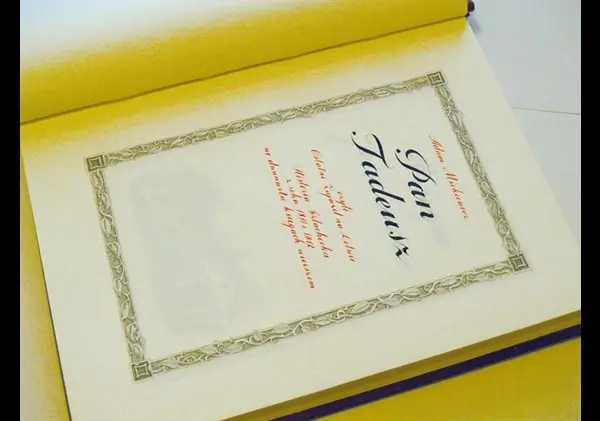 Adam Mickiewicz
Pan
Tadeusz
czyli
Ostatni Zajazd na Litwie
Historia Szlachecka
z roku 1811 i 1812
we dwunastu księgach wierszem